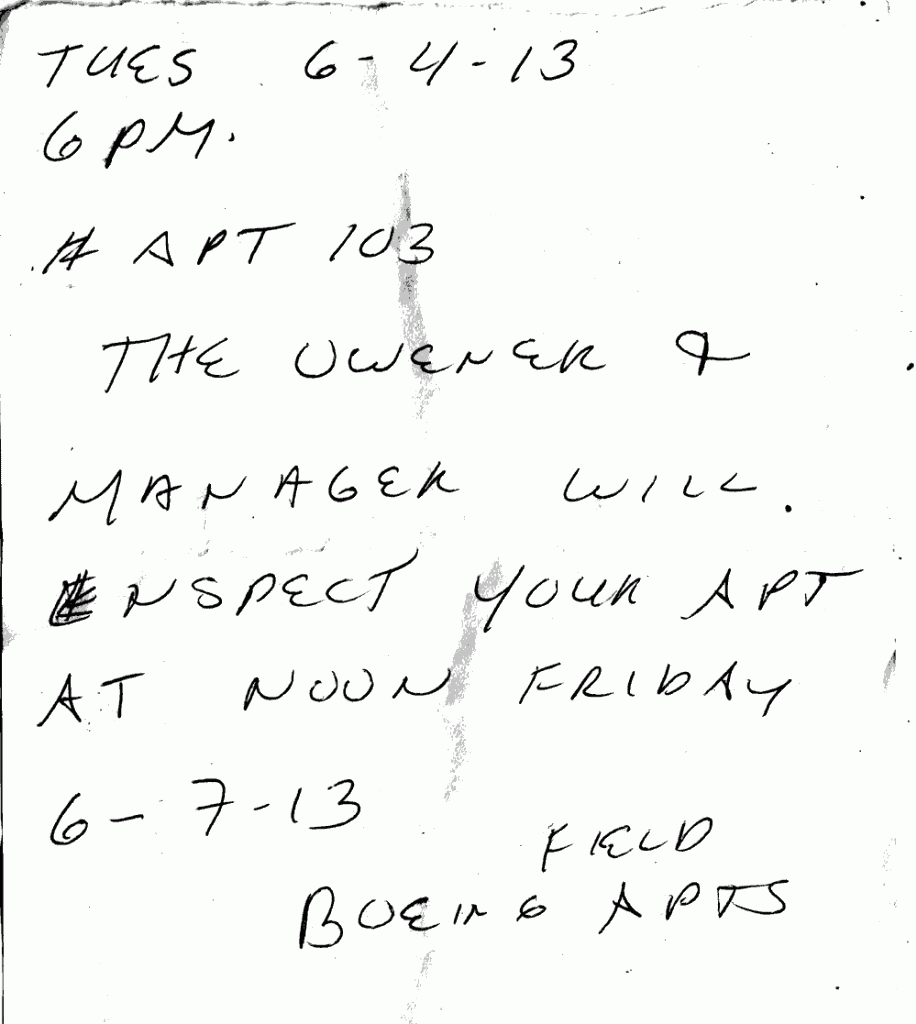 TUES 6-4-13
6 PM.
# APT 103
THE OWENER &
MANAGER WILL
INSPECT YOUR APT
AT NOON FRIDAY
6-7-13
FIELD
BOEING APTS